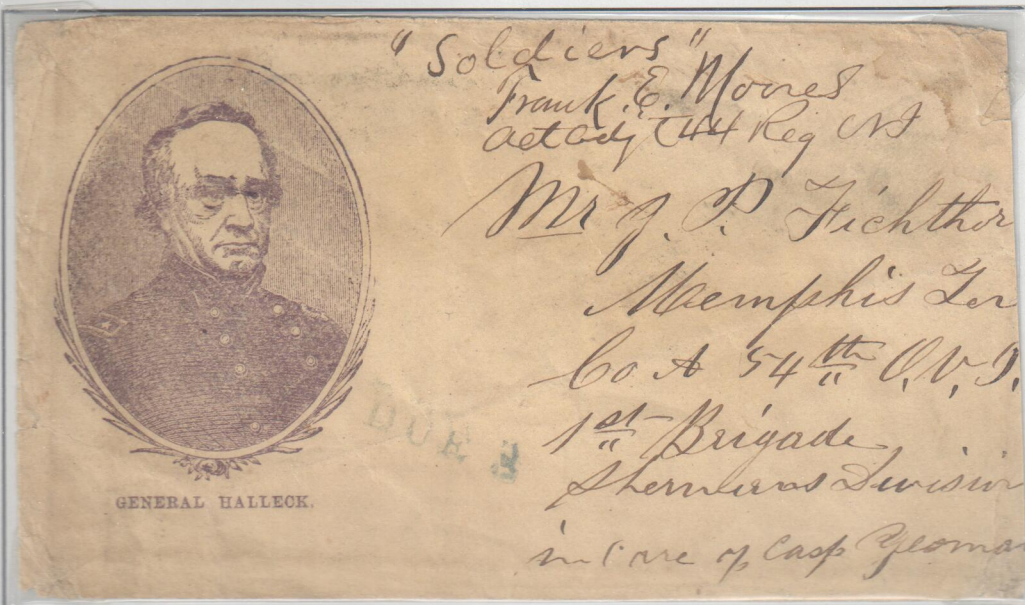 "Soldiers"
Frank. E. Moores
Act Adj 44 Reg
Mr J. P. Fichthor
Memphis Ten
Co A 54th O. V. I.
1st Brigade
Shermans Division
in Care of Capt Yeoman
DUE 3
GENERAL HALLECK.